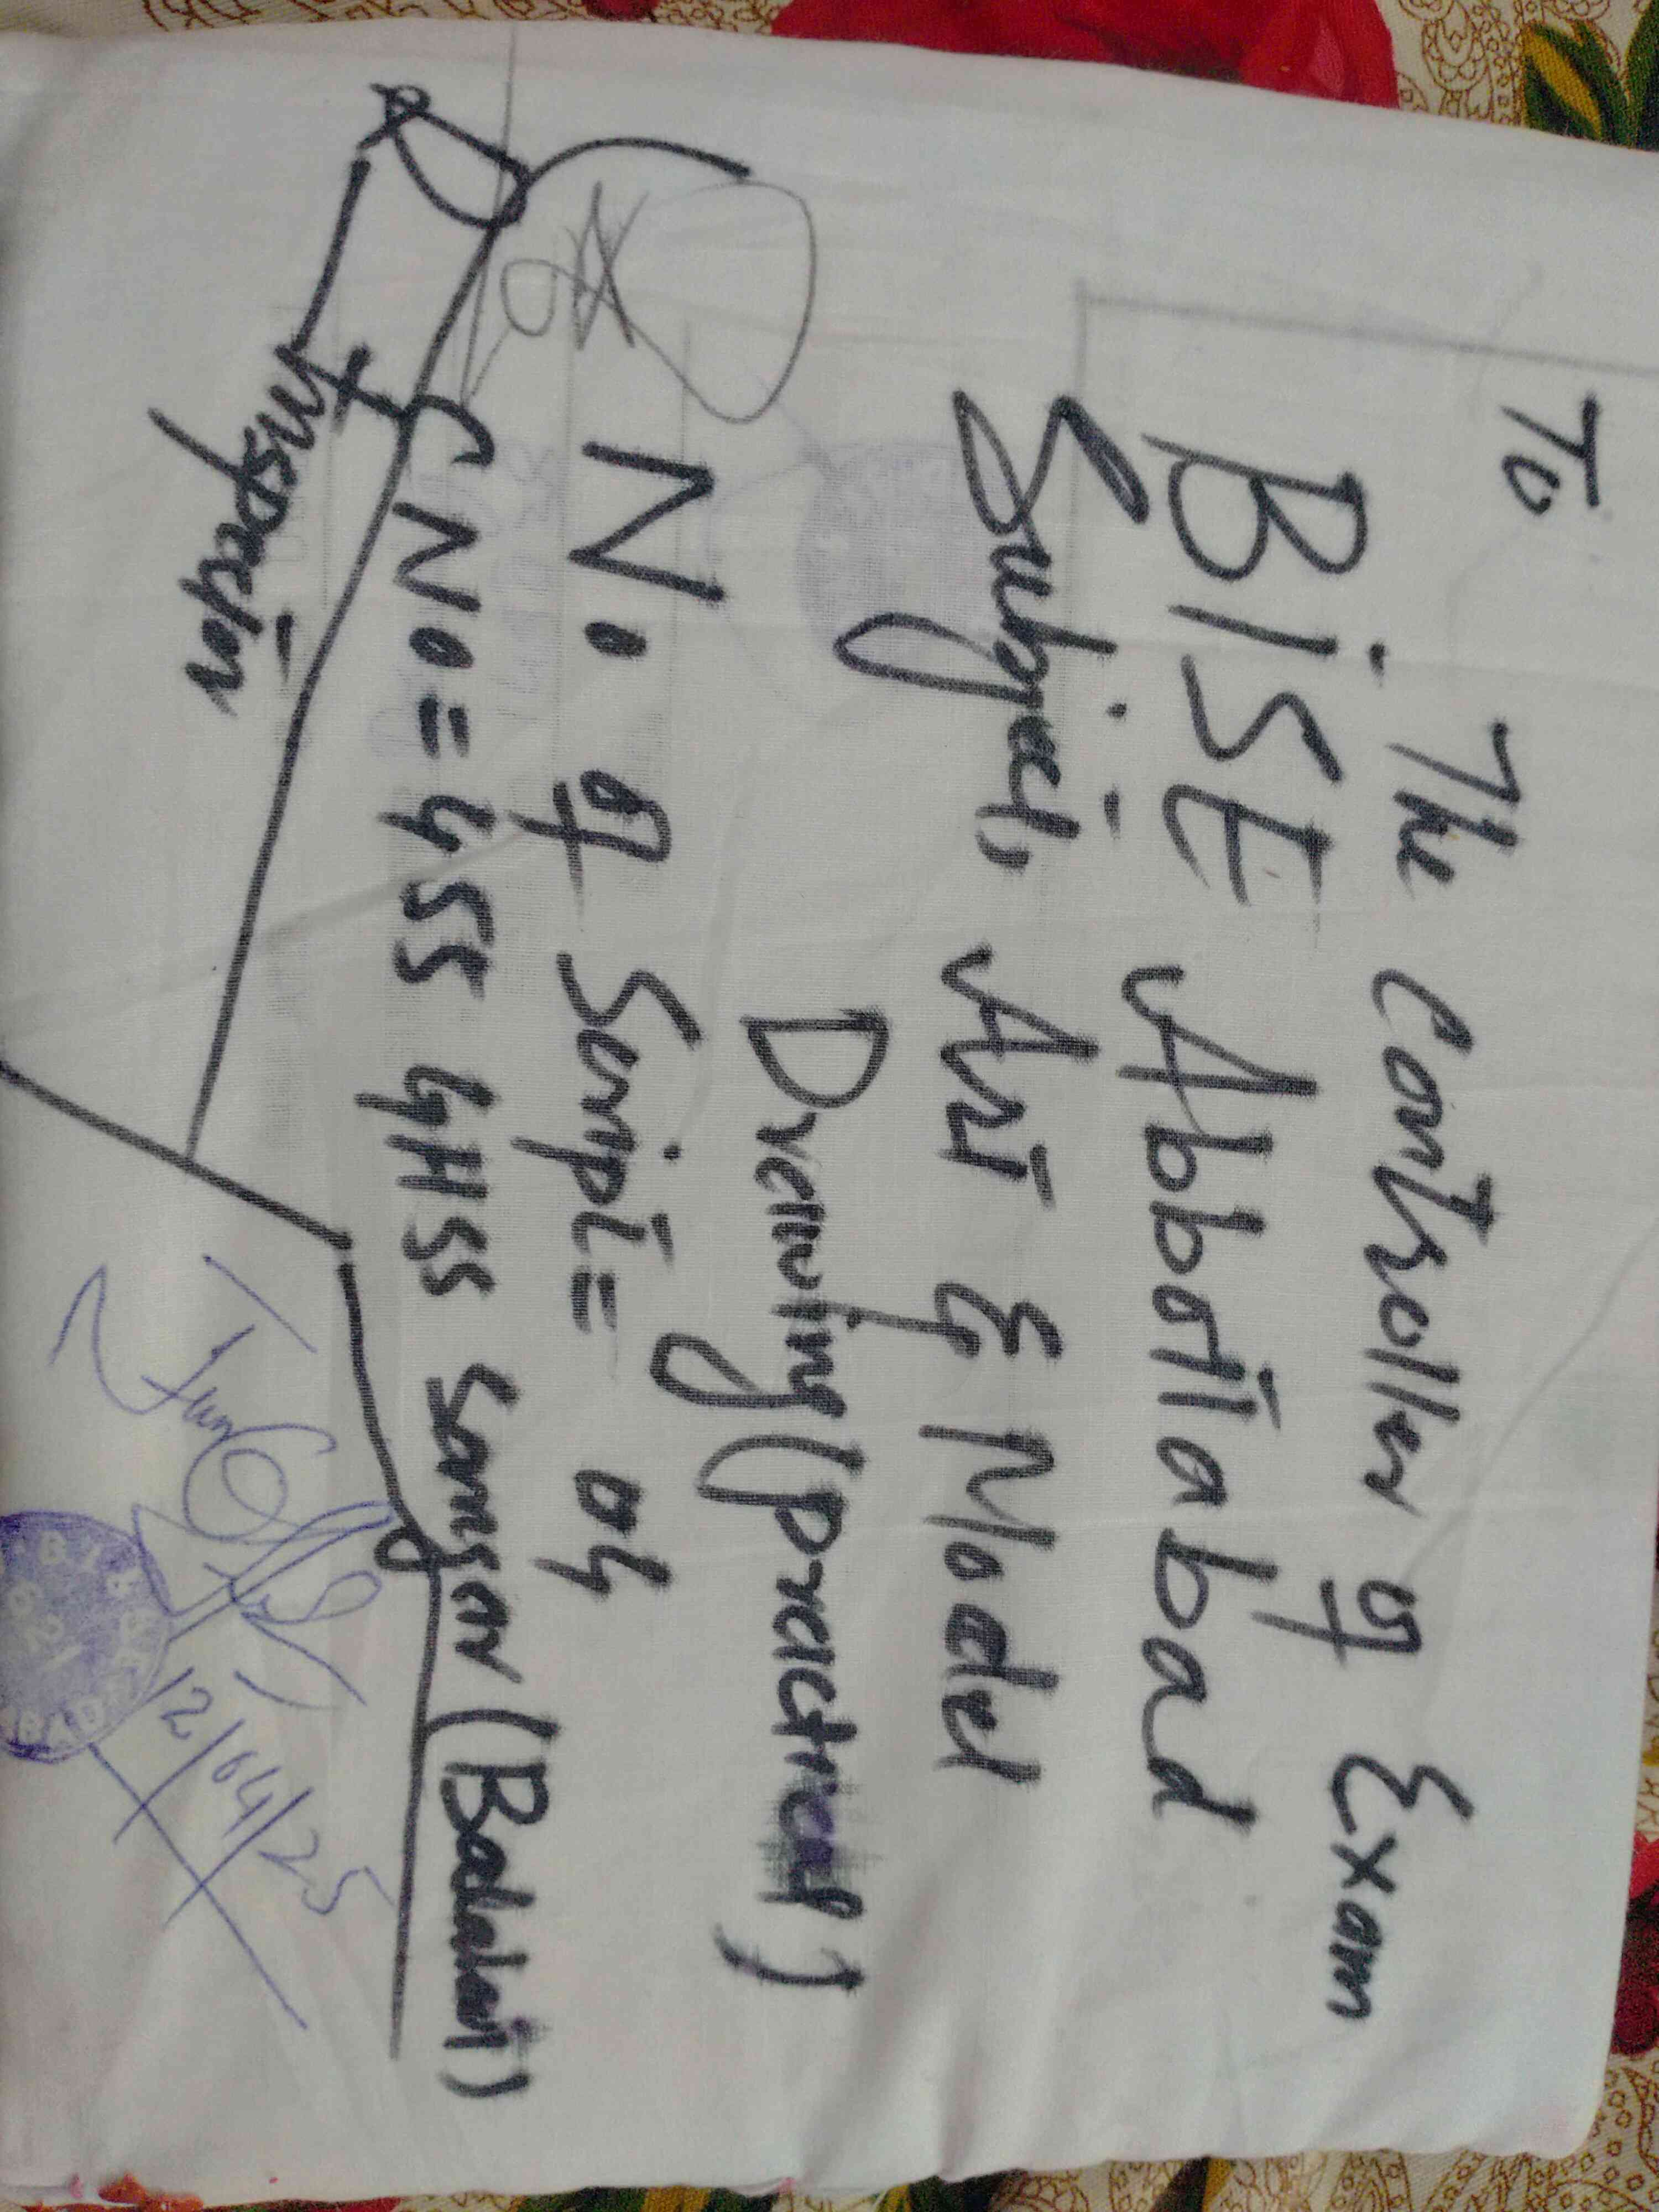 To
The Controller of Exam
BiSE Abbottabad
Subject Art & Model
Drawing (practical)
No. of Script = 04
C No = 455 GHSS
Inspector
12/04/25